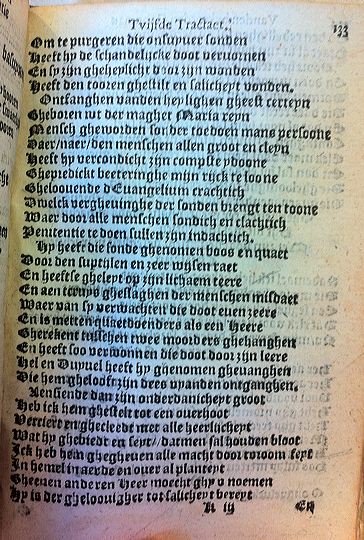 Tvijfde Tractaet.
133
Om te purgeren die onsuyver sonden
Heeft hy de schandelijcke doot verwornen
En sy zijn gheheylicht door zijn wonden
Heeft den tooren ghestilt en salicheyt vonden.
Ontfanghen vanden heylighen gheest certeyn
Gheboren wt der maghet Maria reyn
Mensch gheworden sonder toedoen mans persoone
Daer/naer/den menschen allen groot en cleyn
Heeft hy vercondicht zijn compste ydoone
Ghepredickt beeteringhe mijn rijck te loone
Gheloovende d'Euangelium crachtich
Dwelck vergheuinghe der sonden brengt ten toone
Waer door alle menschen sondich en clachtich
Penitentie te doen sullen zijn indachtich.
Hy heeft die sonde ghenomen boos en quaet
Door den suptijlen en zeer wijsen raet
En heeftse gheleyt op zijn lichaem teere
En aen tcruys gheslaghen der menschen misdaet
Waer van sy verwachten die doot euen zeere
En is metten quaetdoenders als een Heere
Gherekent tusschen twee moorders ghehanghen
En heeft soo verwonnen die doot door zijn leere
Hel en Duyuel heeft hy ghenomen gheuanghen
Die hem ghelooft zijn dees vianden ontganghen.
Aensiende dan zijn onderdanicheyt groot
Heb ick hem ghestelt tot een ouerhoot
Verciert en ghecleedt met alle heerlijcheyt
Wat hy ghebiedt en seyt// datmen sal houden bloot
Ick heb hem ghegheuen alle macht door
In hemel in aerde en ouer al planteyt
Gheenen anderen Heer moecht ghy v noemen
Hy is der gheloouigher tot salicheyt bereyt
R iij
En